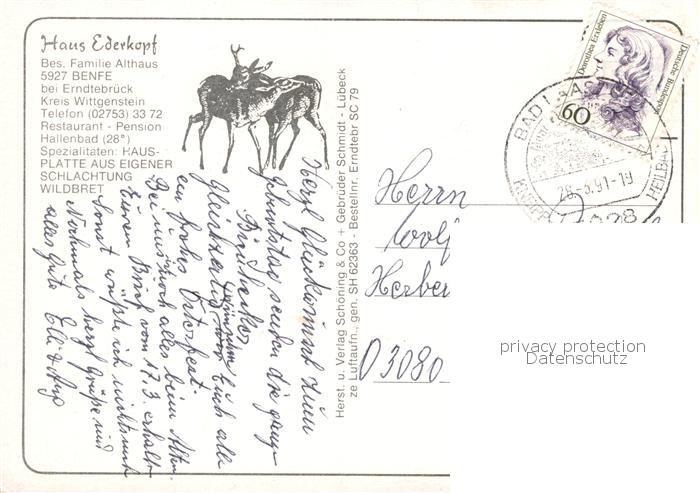 Haus Ederkopf
Bes. Familie Althaus
5927 BENFE
bei Erndtebrück
Kreis Wittgenstein
Telefon (02753) 33 72
Restaurant - Pension
Hallenbad (28°)
Spezialitäten: HAUS-
PLATTE AUS EIGENER
SCHLACHTUNG
WILDBRET
Herzl. Glückwunsch zum
Geburtstag senden die ganze
Gleichzeitig wünschen Euch alle
ein frohes Osterfest.
Bei uns noch alles beim Alten.
Euren Brief vom 17.3. erhalten
sonst wüßte ich nichts mehr
Nochmals herzl. Grüße und
alles Gute Elli &
Herst. u. Verlag Schöning & Co + Gebrüder Schmidt - Lübeck
ze Luftaufn., gen. SH 62363 - Bestellnr. Erndtebr SC 79
Dorothea Erxleben
Deutsche Bundespost
60
BAD
28.3.91-19
HEILBAD
Herrn
Wolf
Herber
D 3080
privacy protection
Datenschutz